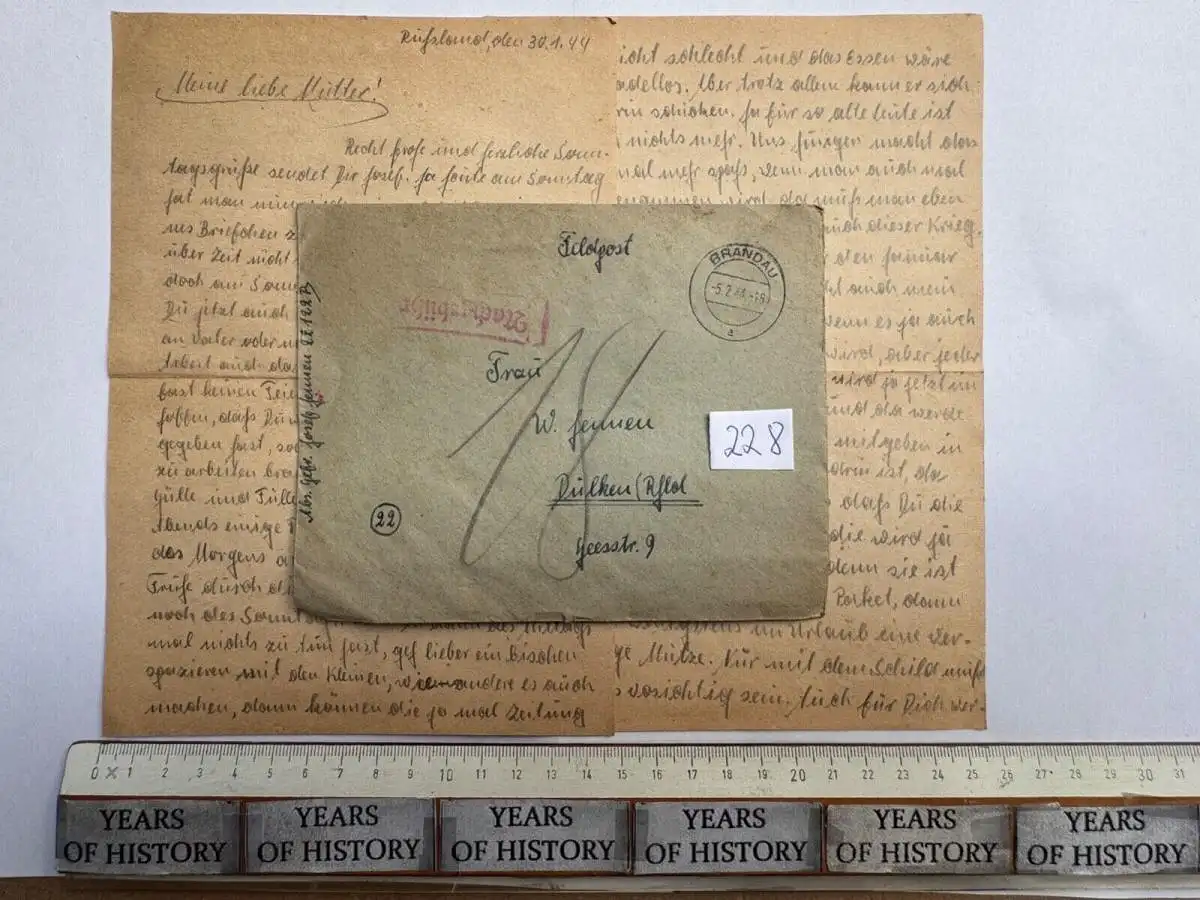 Rußland, den 30.1.44
Meine liebe Mutter!
Recht frohe und herzliche Sonn-
tagsgrüße sendet Dir Josef. Ja heute am Sonntag
hat man
Briefchen
über Zeit nicht
doch am
Du jetzt auch
an Vater oder
Arbeit und
fast keinen
hoffen, daß Du
gegeben hast,
zu arbeiten
Hülle und Fülle
Abends einige
das Morgens
Frühe durch
noch des
mal nichts zu tun hast, geh lieber ein bischen
spazieren mit den Kleinen, andere es auch
machen, dann können die ja mal Zeitung
schlecht und das Essen wäre
Aber trotz allem kann er sich
schicken. Ja für so alte Leute ist
nichts mehr. Uns jüngen macht das
mal mehr spaß, wenn man auch mal
wird, da muß man eben
auch dieser Krieg.
den
auch mein
wenn es ja auch
wird, aber jeder
wird ja jetzt im
und da werde
mitgeben in
drin ist, da
daß Du die
die wird ja
denn sie ist
Paket, dann
im Urlaub eine
Mütze. Nur mit dem Schild muß
vorsichtig sein. Auch für Dich
Feldpost
BRANDAU
-5.2.44
a
Nachgebühr
18
Frau
W. Jennen
Dülken/Rhld
Heesstr. 9
22
Abs. Gefr. Josef Jennen 22122 B
228
0 1 2 3 4 5 6 7 8 9 10 11 12 13 14 15 16 17 18 19 20 21 22 23 24 25 26 27 28 29 30 31
YEARS OF HISTORY
YEARS OF HISTORY
YEARS OF HISTORY
YEARS OF HISTORY
YEARS OF HISTORY
YEARS OF HISTORY